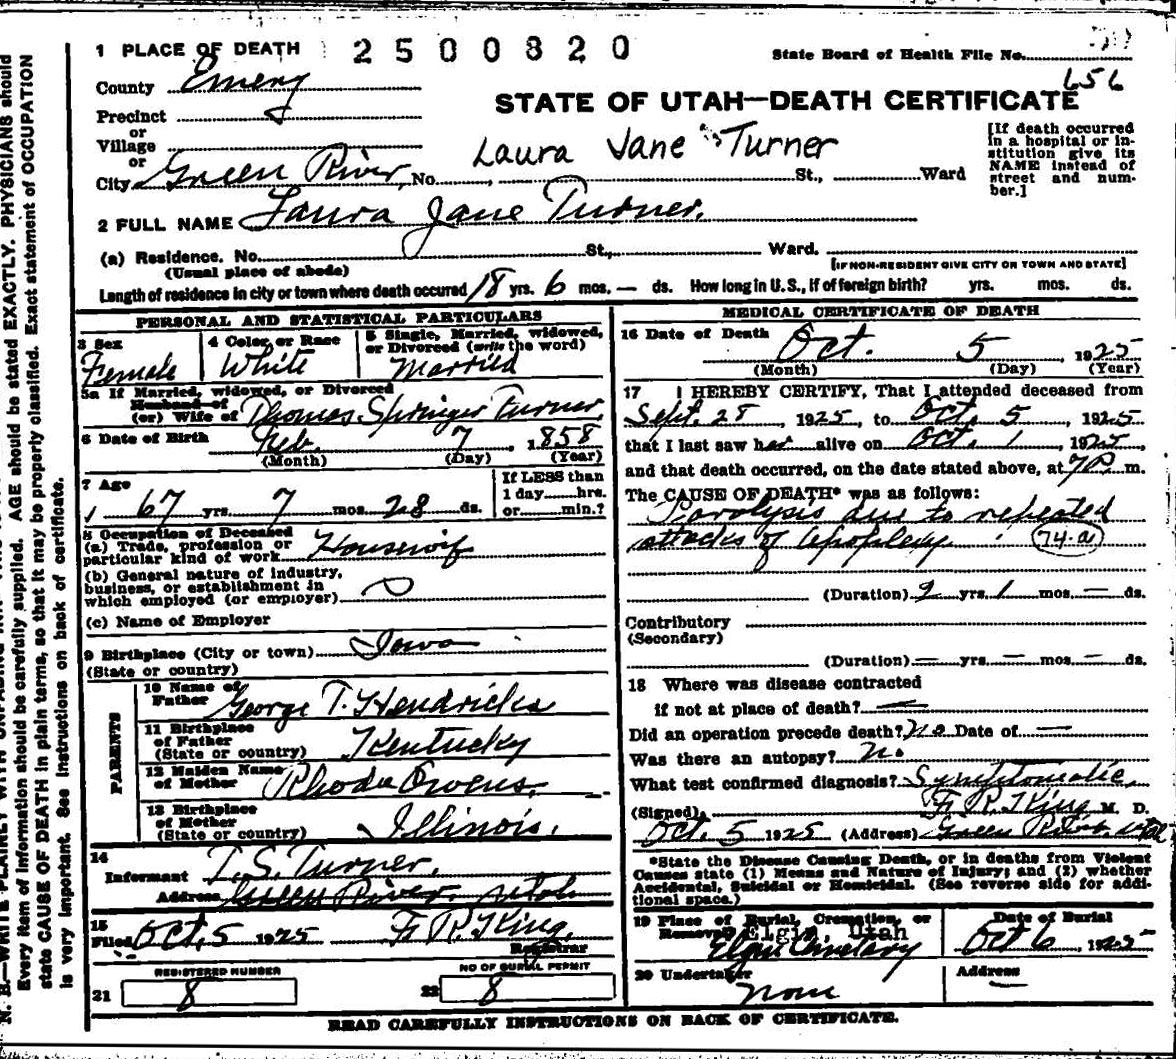 1 PLACE OF DEATH 2500820 State Board of Health File No.
County Emery 656
STATE OF UTAH—DEATH CERTIFICATE
Precinct
or
Village
or
City Green River, No. St., Ward
Laura Jane Turner
[If death occurred in a hospital or institution give its NAME instead of street and number.]
2 FULL NAME Laura Jane Turner.
(a) Residence. No. St., Ward.
(Usual place of abode) [IF NON-RESIDENT GIVE CITY OR TOWN AND STATE]
Length of residence in city or town where death occured 18 yrs. 6 mos. — ds. How long in U.S., if of foreign birth? yrs. mos. ds.
PERSONAL AND STATISTICAL PARTICULARS
3 Sex 4 Color or Race 5 Single, Married, widowed, or Divorced (write the word)
Female White Married
5a If Married, widowed, or Divorced
Husband of
(or) Wife of Thomas Springer Turner
6 Date of Birth Feb. 7, 1858
(Month) (Day) (Year)
7 Age If LESS than
1 day hrs.
67 yrs. 7 mos. 28 ds. or min.?
8 Occupation of Deceased
(a) Trade, profession or
particular kind of work Housewif
(b) General nature of industry,
business, or establishment in
which employed (or employer)
(c) Name of Employer
9 Birthplace (City or town) Iowa
(State or country)
PARENTS
10 Name of
Father George T. Hendricks
11 Birthplace
of Father
(State or country) Kentucky
12 Maiden Name
of Mother Rhoda Owens.
13 Birthplace
of Mother
(State or country) Illinois.
14
Informant T.S. Turner,
Address Green River Utah
15
Filed Oct. 5 1925 F. R. King.
Registrar
REGISTERED NUMBER NO OF BURIAL PERMIT
21 8 22 8
MEDICAL CERTIFICATE OF DEATH
16 Date of Death Oct. 5, 1925
(Month) (Day) (Year)
17 I HEREBY CERTIFY, That I attended deceased from
Sept. 28, 1925, to Oct. 5, 1925
that I last saw her alive on Oct. 1, 1925,
and that death occurred, on the date stated above, at 7P. m.
The CAUSE OF DEATH* was as follows:
Paralysis due to repeated
attacks of Apoplexy. 74-a
(Duration) 2 yrs. 1 mos. — ds.
Contributory
(Secondary)
(Duration) — yrs. — mos. — ds.
18 Where was disease contracted
if not at place of death? —
Did an operation precede death? No Date of —
Was there an autopsy? no
What test confirmed diagnosis? Symptomatic,
(Signed) F. R. King M. D.
Oct. 5 1925 (Address) Green River Utah
*State the Disease Causing Death, or in deaths from Violent
Causes state (1) Means and Nature of Injury; and (2) whether
Accidental, Suicidal or Homicidal. (See reverse side for addi-
tional space.)
19 Place of Burial, Cremation, or Date of Burial
Removal Elgin, Utah
Elgin Cemetary Oct 6, 1925
20 Undertaker Address
none —
READ CAREFULLY INSTRUCTIONS ON BACK OF CERTIFICATE.
Every item of information should be carefully supplied. AGE should be stated EXACTLY. PHYSICIANS should
state CAUSE OF DEATH in plain terms, so that it may be properly classified. Exact statement of OCCUPATION
is very important. See instructions on back of certificate.